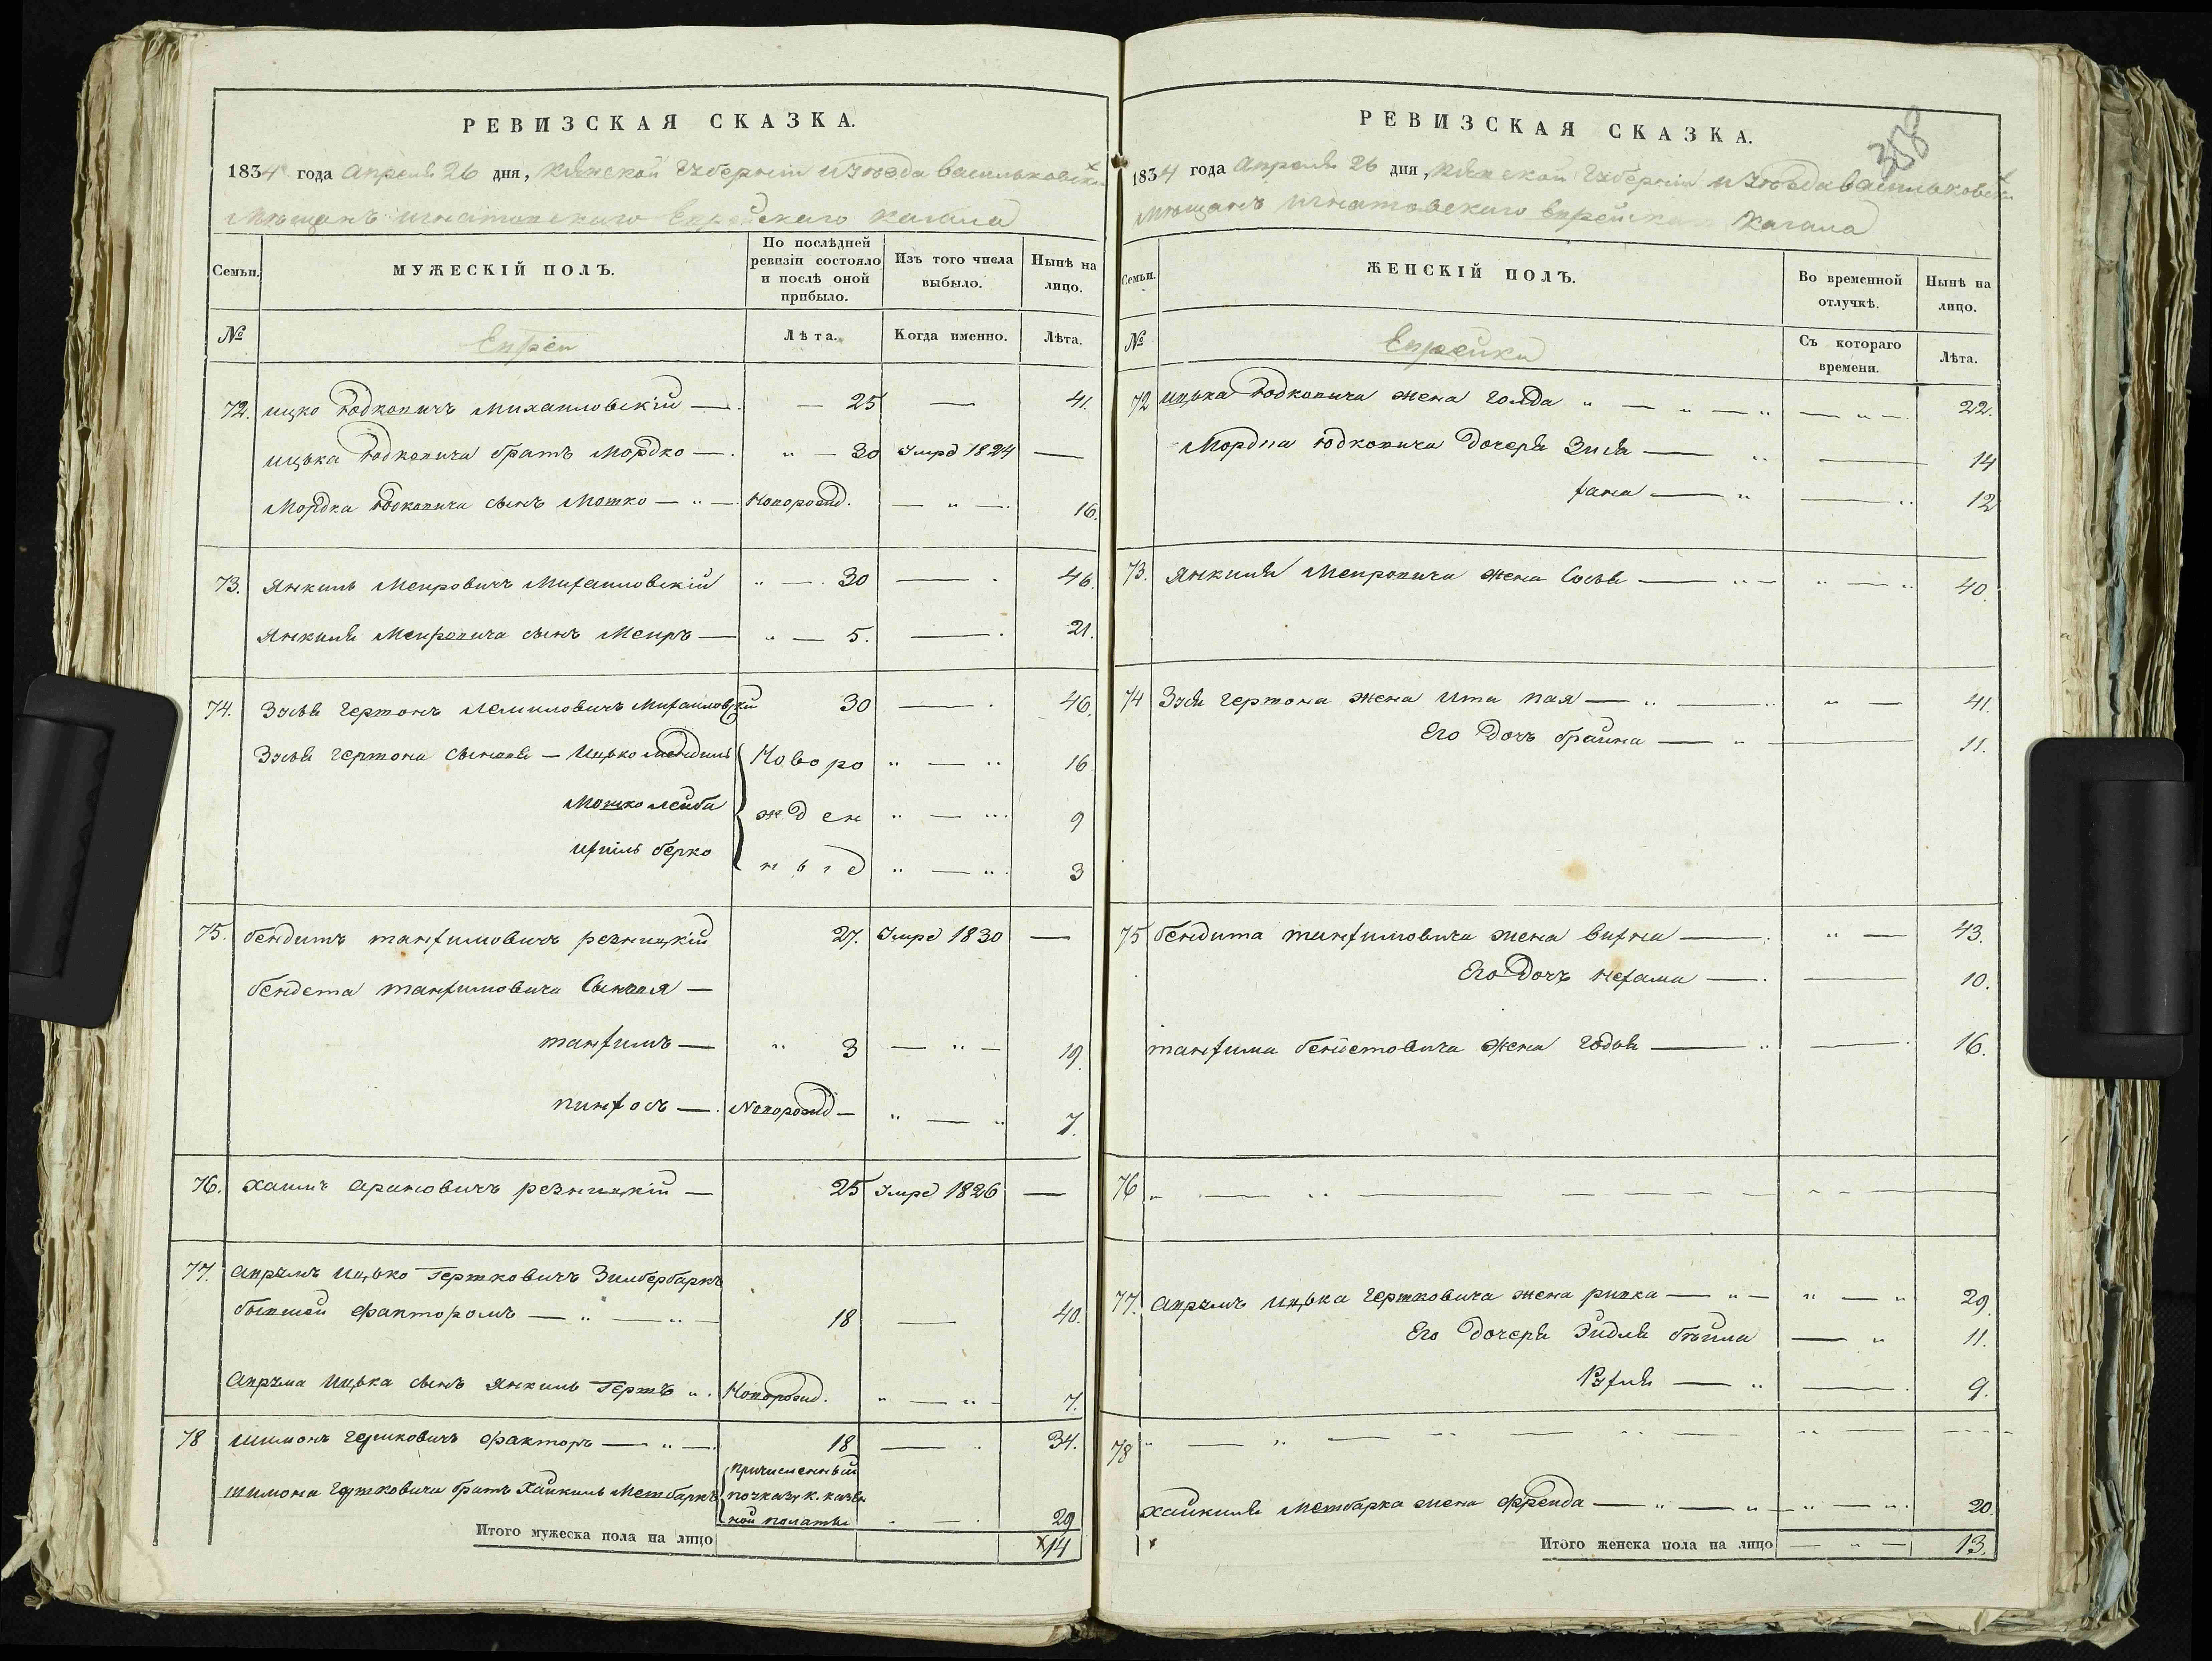 РЕВИЗСКАЯ СКАЗКА.
1834 года апреля 26 дня, Кіевской Губерніи и уѣзда васильковск
мѣщанъ игнатовскаго Еврейскаго кагала
Семьи. МУЖЕСКІЙ ПОЛЪ. По послѣдней ревизіи состояло и послѣ оной прибыло. Изъ того числа выбыло. Нынѣ на лицо.
№ Евреи Лѣта. Когда именно. Лѣта.
72. ицко Юдковичъ михаиловскій — 25 — 41.
ицька Юдковича братъ мордко — 30 Умре 1824 —
Мордка Юдковича сынъ Мошко — Новорожд. — 16.
73. Янкиль Меировичъ Михаиловскій — 30 — 46.
Янкиля Меировича сынъ Меиръ — 5. — 21.
74. Зусь гершонъ Михаиловскій 30 — 46.
Зуся гершона сыновя — Ицько мендиль Новоро — 16
Мошко лейба жден — 9
ихиль берко ныѣ — 3
75. бендитъ танхимовичъ резницкій 27. Умре 1830 —
бендета танхимовича Сыновя —
танхимъ — 3 — 19.
пинхосъ — Новорожд — 7.
76. хаимъ арановичъ резницкій — 25 Умре 1826 —
77. аврумъ ицько Гершковичъ Зилбербаркъ
бывшей факторомъ — 18 — 40.
Аврума Ицька сынъ янкиль Гершъ Новорожд. — 7.
78 шимонъ гершковичъ факторъ — 18 — 34.
шимона гершковича братъ Хайкиль Метбаркъ причисленный
по указу к. казен
ной полаты — 29
Итого мужеска пола на лицо 14
РЕВИЗСКАЯ СКАЗКА.
1834 года апреля 26 дня, Кіевской Губерніи и уѣзда васильковск
мѣщанъ игнатовскаго Еврейскаго Кагала
Семьи. ЖЕНСКІЙ ПОЛЪ. Во временной отлучкѣ. Нынѣ на лицо.
№ Еврейки Съ котораго времени. Лѣта.
72 ицька Юдковича жена голда — 22.
Мордка Юдковича дочеря Зися — 14
хана — 12
73. Янкиля Меировича жена Сося — 40.
74 Зуся гершона жена ита хая — 41.
Его дочь брайна — 11.
75 бендита танхимовича жена — 43.
Его дочь нехама — 10.
танхима бендетовича жена годя — 16.
76 —
77. аврумъ ицька гершковича жена ривка — 29.
Его дочеря Эйдля бѣйла — 11.
Рухля — 9.
78 —
хайкиля метбарка жена фрейда — 20.
Итого женска пола на лицо — 13.